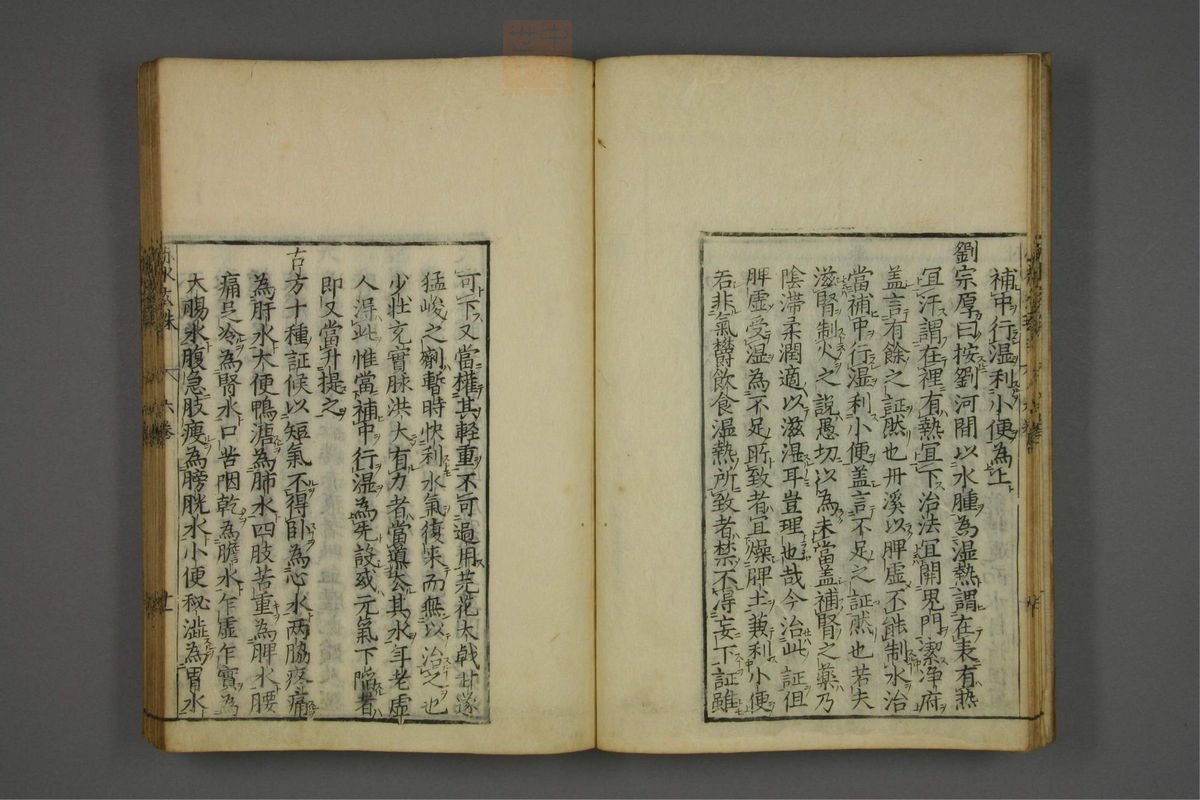 補中行湿利小便為上
劉宗厚曰按劉河間以水腫為湿熱謂在表有热
宜汗謂在裡有熱宜下治法宜開鬼門潔浄府
盖言有餘之証然也丹溪以脾虚不能制水治
當補中行湿利小便盖言不足之証然也若夫
滋腎制火之説愚切以為未當盖補腎之薬乃
陰滞柔潤適以滋湿耳豈理也哉今治此証但
脾虚受湿為不足所致者宜燥脾土兼利小便
若非氣欝飲食湿熱所致者禁不得妄下証雖
可下又當權其軽重不可過用芫花大戟甘遂
猛峻之劑暫時快利水氣復来而無以治之也
少壮充實脉洪大有力者當導去其水年老虚
人得此惟當補中行湿為先設或元氣下陥者
即又當升提之
古方十種証候以短氣不得卧為心水两脇疼痛
為肝水大便鴨溏為肺水四肢苦重為脾水腰
痛足冷為腎水口苦咽乾為膽水乍虚乍實為
大腸水腹急肢痩為膀胱水小便秘澁為胃水
六巻